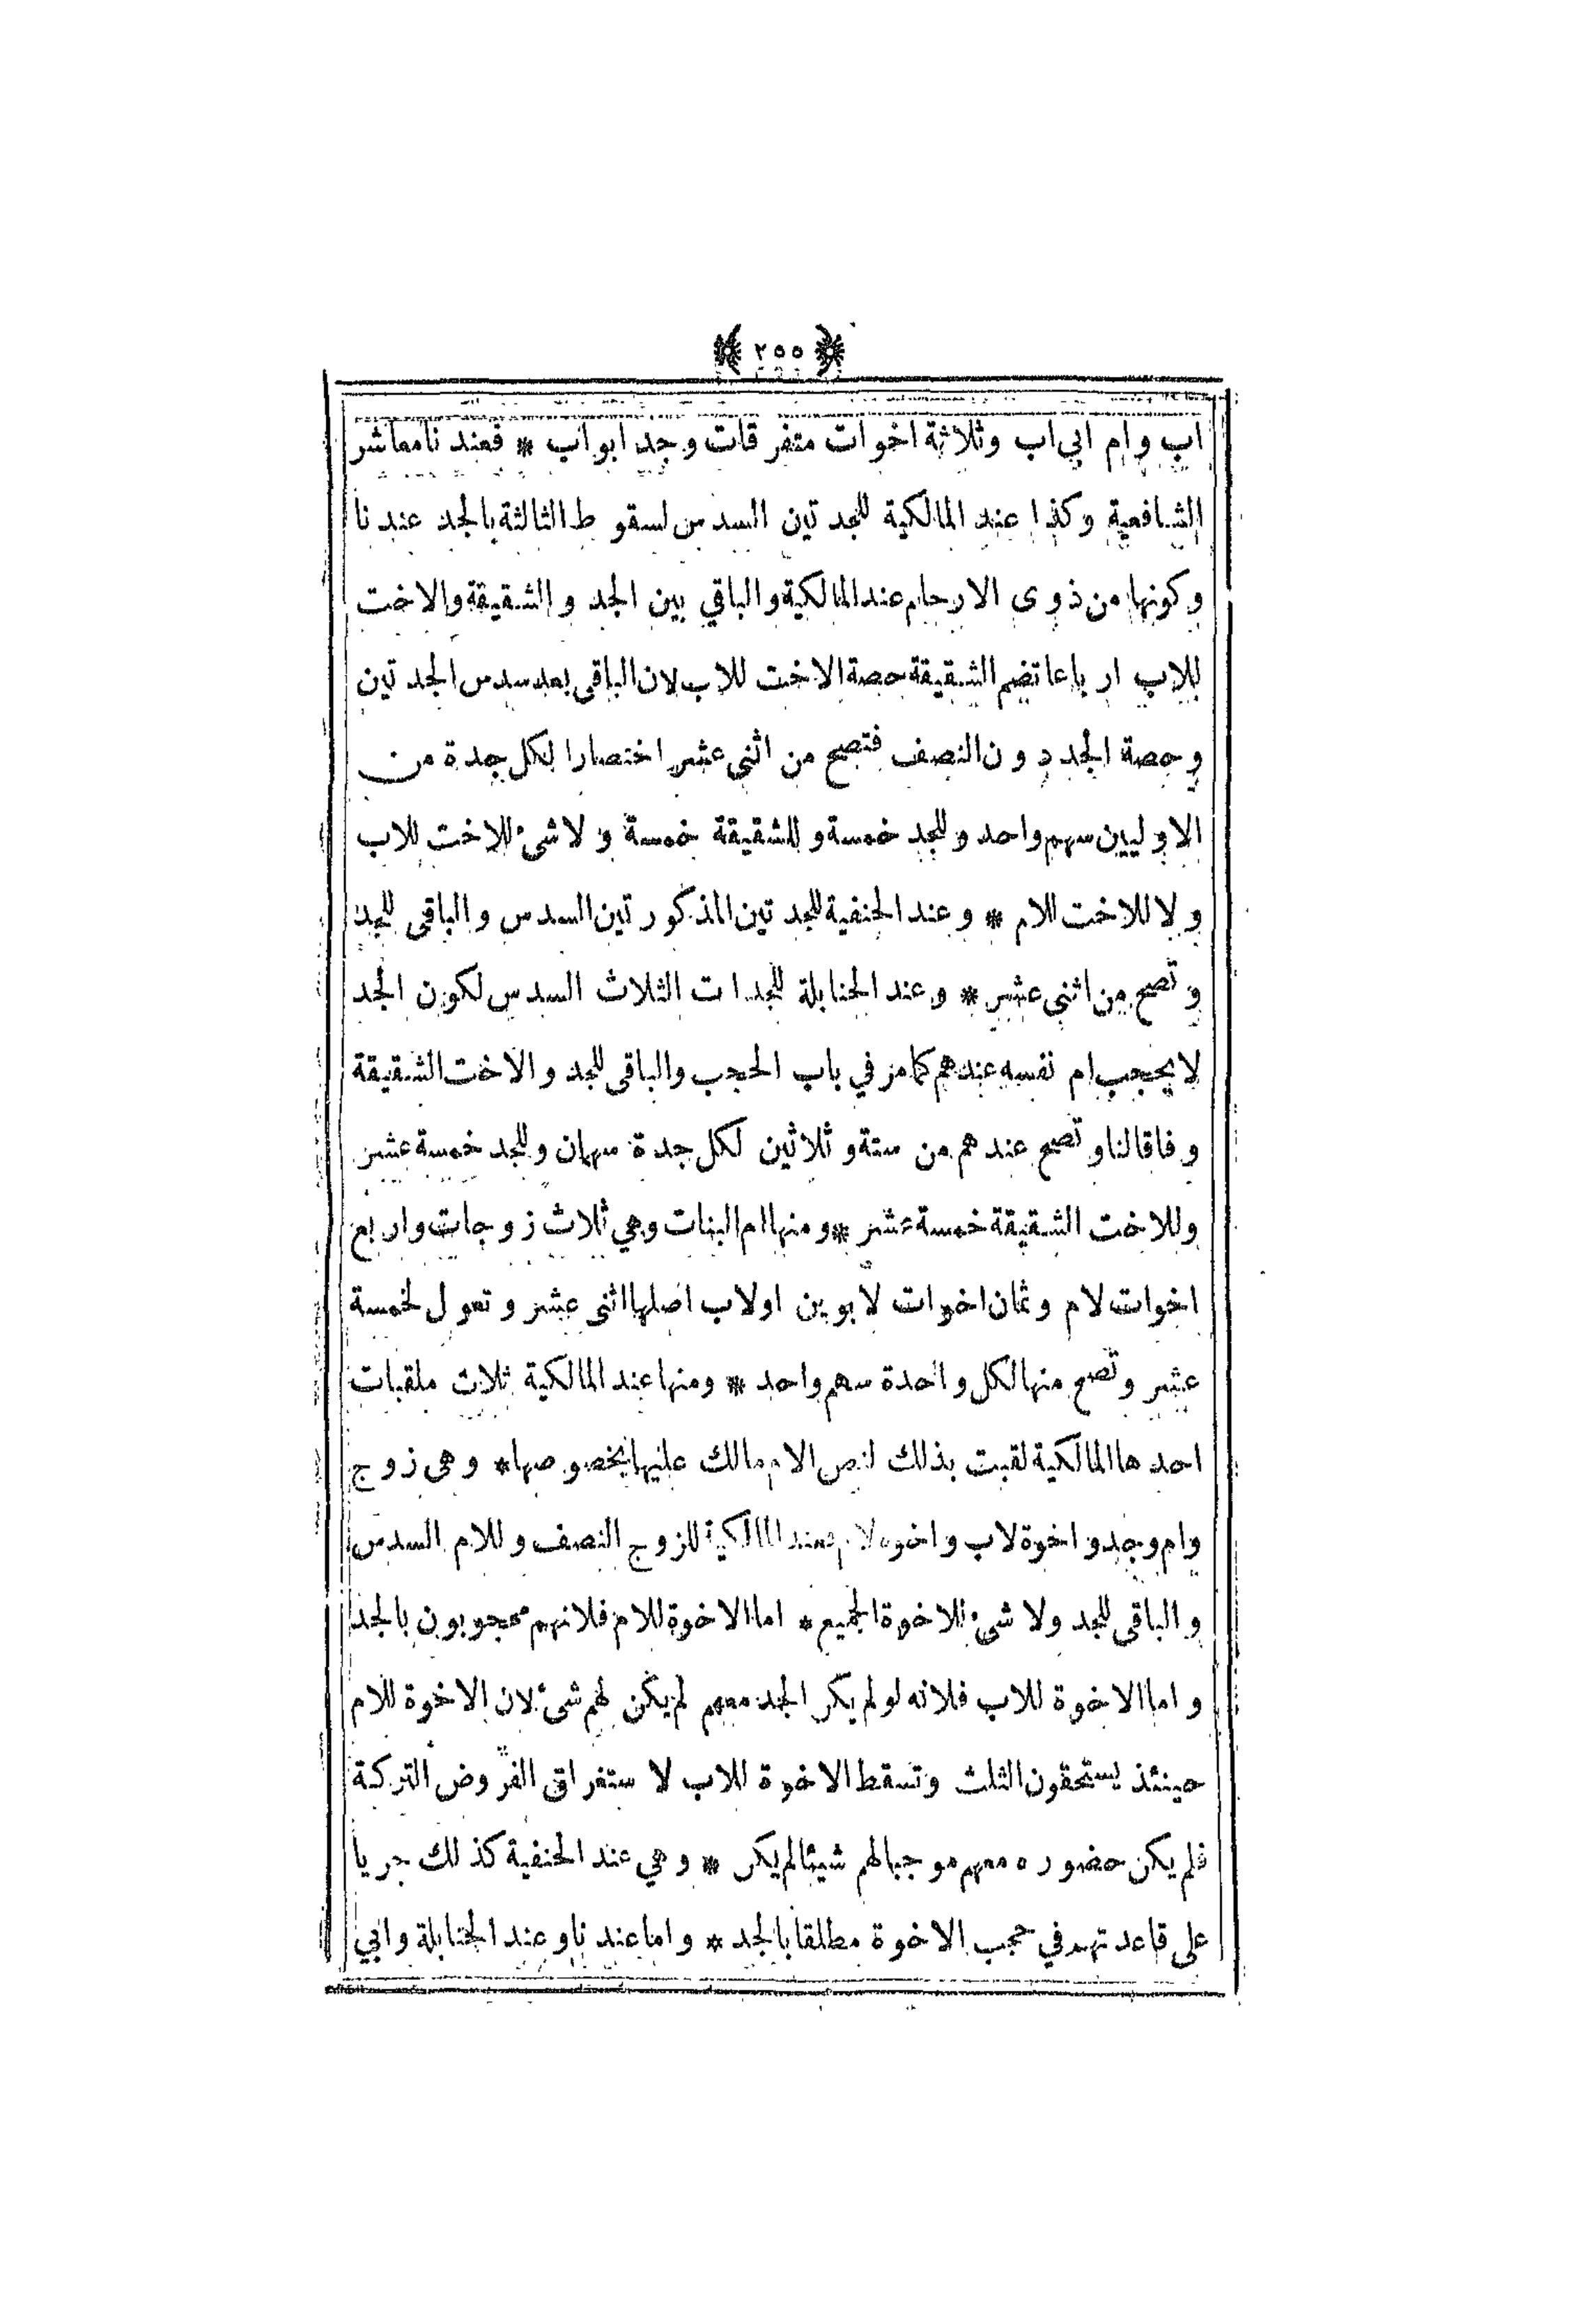 ﴿ ٢٥٥ ﴾
اب وام ابي اب وثلاثة اخوات متفرقات وجد ابواب * فعندنا معاشر
الشافعية وكذا عند المالكية للجدتين السدس لسقوط الثالثة بالجد عندنا
وكونها من ذوى الارحام عند المالكية والباقي بين الجد والشقيقة والاخت
للاب ارباعا تضم الشقيقة حصة الاخت للاب لان الباقى بعد سدس الجدتين
وحصة الجد دون النصف فتصح من اثنى عشر اختصارا لكل جدة من
الاوليين سهم واحد وللجد خمسة وللشقيقة خمسة ولا شئ للاخت للاب
ولا للاخت للام * وعند الحنفية للجدتين المذكورتين السدس والباقى للجد
وتصح من اثنى عشر * وعند الحنابلة للجدات الثلاث السدس لكون الجد
لا يحجب ام نفسه عندهم كما مر في باب الحجب والباقى للجد والاخت الشقيقة
وفاقا لنا وتصح عندهم من ستة وثلاثين لكل جدة سهمان وللجد خمسة عشر
وللاخت الشقيقة خمسة عشر * ومنها ام البنات وهي ثلاث زوجات واربع
اخوات لام وثمان اخوات لابوين اولاب اصلها اثنى عشر وتعول لخمسة
عشر وتصح منها لكل واحدة سهم واحد * ومنها عند المالكية ثلاث ملقبات
احدها المالكية لقبت بذلك لنص الامام مالك عليها بخصوصها * وهى زوج
وام وجد واخوة لاب واخوة لام فعند المالكية للزوج النصف وللام السدس
والباقى للجد ولا شئ للاخوة الجميع * اما الاخوة للام فلانهم محجوبون بالجد
واما الاخوة للاب فلانه لو لم يكن الجد معهم لم يكن لهم شئ لان الاخوة للام
حينئذ يستحقون الثلث وتسقط الاخوة للاب لاستغراق الفروض التركة
فلم يكن حضوره معهم موجبا لهم شيئا لم يكن * وهي عند الحنفية كذلك جريا
على قاعدتهم في حجب الاخوة مطلقا بالجد * واما عندنا وعند الحنابلة وابي